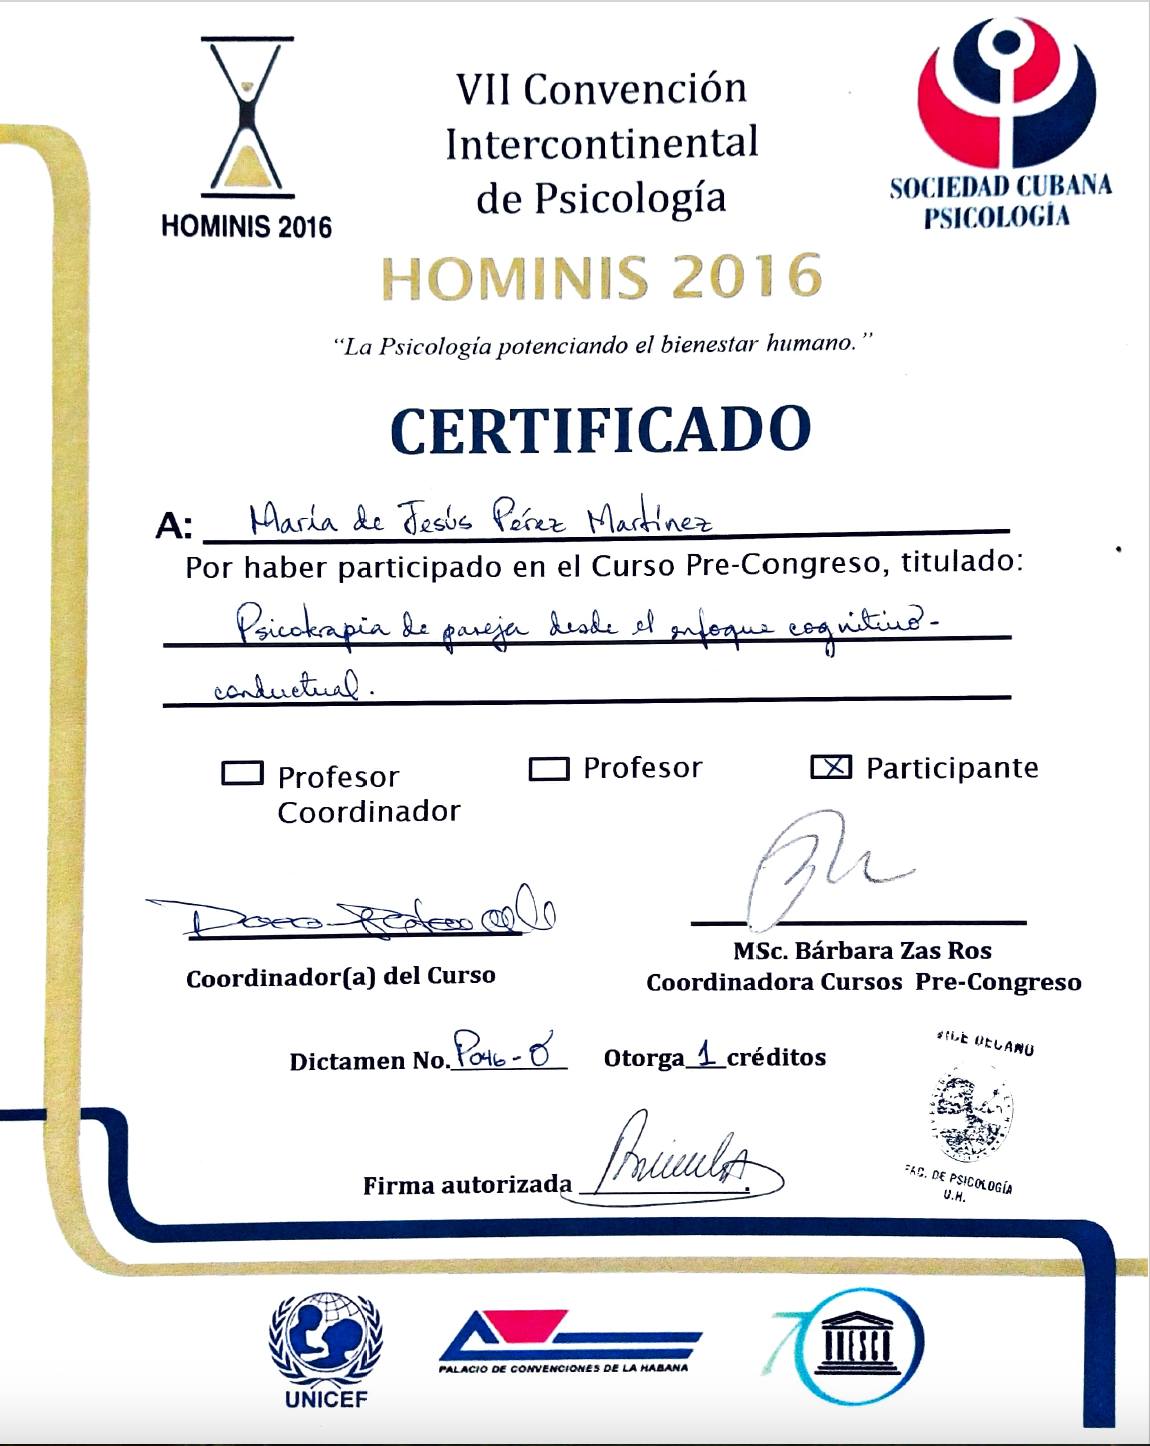 VII Convención
Intercontinental
de Psicología
HOMINIS 2016
SOCIEDAD CUBANA
PSICOLOGÍA
HOMINIS 2016
“La Psicología potenciando el bienestar humano.”
CERTIFICADO
A: María de Jesús Pérez Martínez
Por haber participado en el Curso Pre-Congreso, titulado:
Psicoterapia de pareja desde el enfoque cognitivo-
conductual.
Profesor
Coordinador
Profesor
Participante
Coordinador(a) del Curso
MSc. Bárbara Zas Ros
Coordinadora Cursos Pre-Congreso
Dictamen No. P046-0 Otorga 1 créditos
Firma autorizada
FAC. DE PSICOLOGÍA
U.H.
UNICEF
PALACIO DE CONVENCIONES DE LA HABANA
70
UNESCO